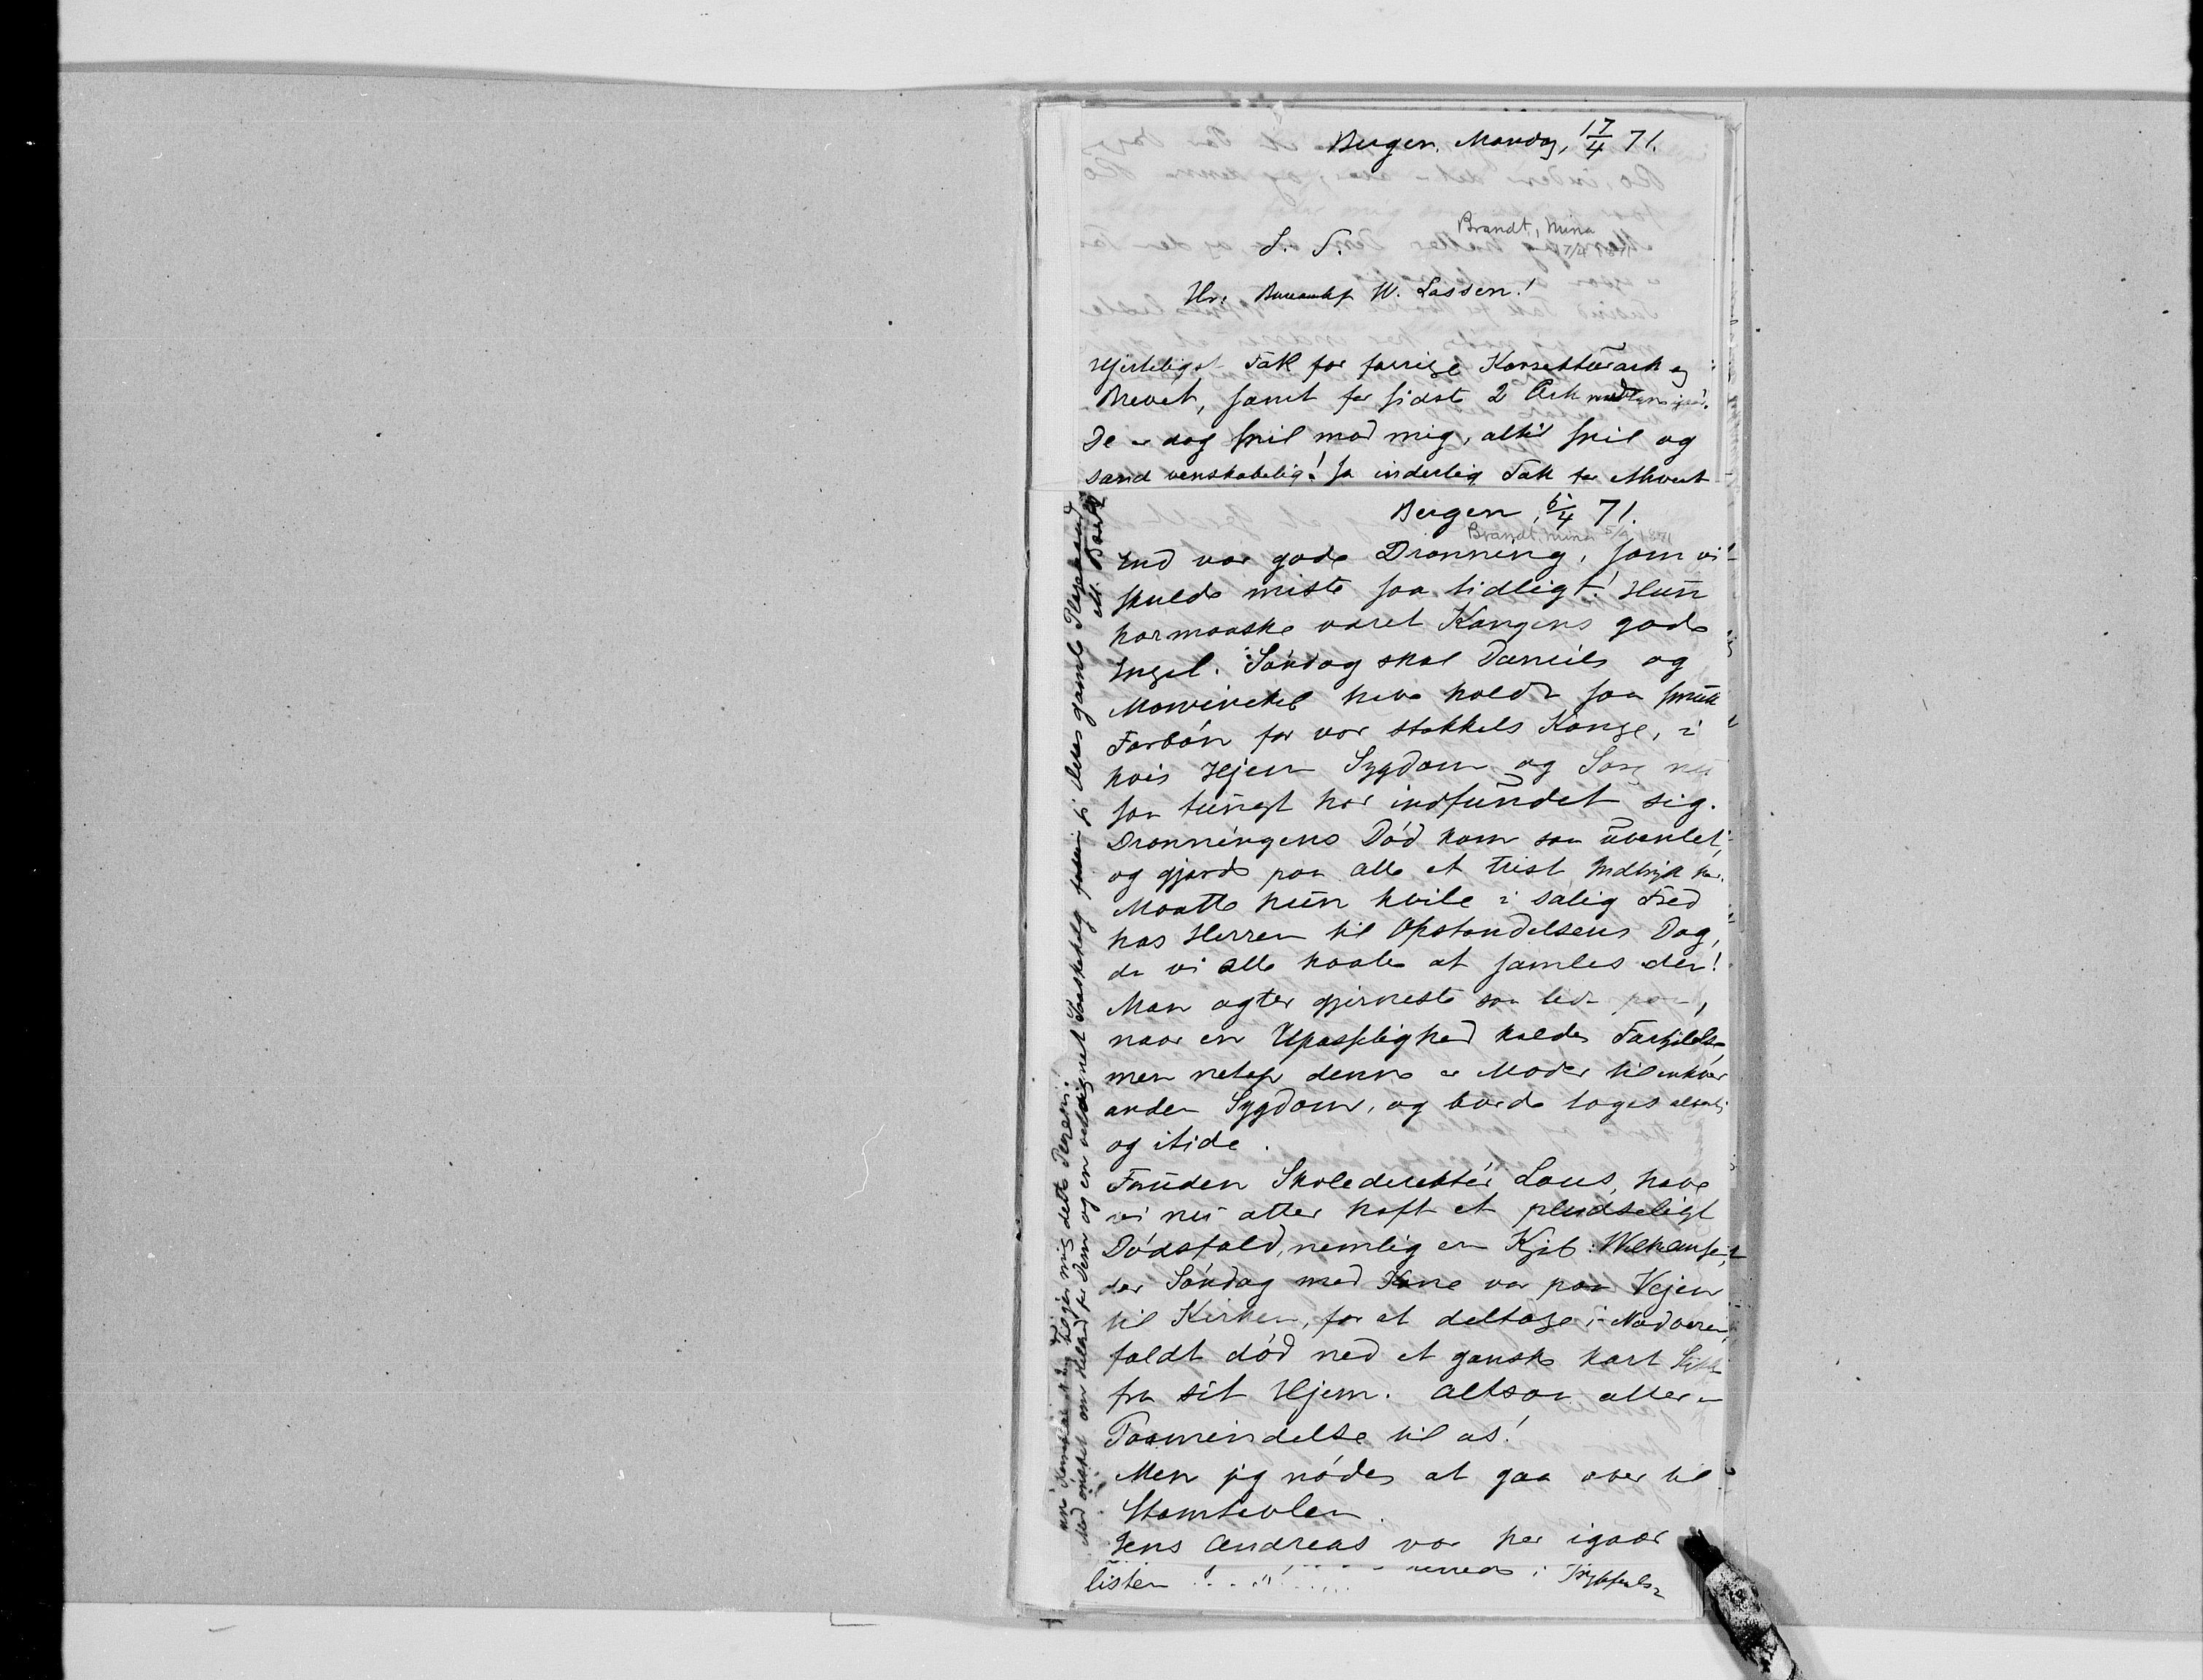 Bergen, Mandag, 17/4 71.
Brandt, Mina
17/4 1871
S. T.
Hr: Bureauchf W. Lassen!
Hjerteligst Tak for forrige Korrekturark og
Brevet, samt for sidste 2 Ark
De er dog snil mod mig, altid snil og
sand venskabelig! Ja inderlig Tak for Alhvert
Bergen, 5/4 71.
Brandt, Mina 5/4 1871
End vor gode Dronning, som vi
skulde miste saa tidligt! Hun
har maaske været Kongens gode
Engel. Søndag skal Daniels og
Mowinckel have holdt saa smuk
Forbøn for vor stakkels Konge, i
hvis Hjem Sygdom og Sorg nu
saa tungt har indfundet sig.
Dronningens Død kom saa uventet,
og gjorde paa alle et trist Indtryk her.
Maatte hun hvile i salig Fred
hos Herren til Opstandelsens Dag,
da vi alle haabe at samles der!
Man agter gjerneste saa lidt paa,
naar en Upasselighed kaldes Forkjølelse,
men netop denne er Moder til enhver
anden Sygdom, og burde tages alvorlig
og itide.
Foruden Skoledirektør Lous, have
vi nu atter haft et pludseligt
Dødsfald, nemlig en Kjøb: Wilhemsen,
der Søndag med Kone var paa Vejen
til Kirken, for at deltage i Nadveren,
faldt død ned et ganske kort Stykke
fra sit Hjem. Altsaa atter en
Paamindelse til os!
Men jeg nødes at gaa over til
Stamtavlen.
Jens Andreas var her igaar
listen
Trykfeils=
mig dette Peneri!
Med ønsket om Helbred for Dem og en velsignet Paaskehelg
Deres gamle Plageaand
M. Brandt